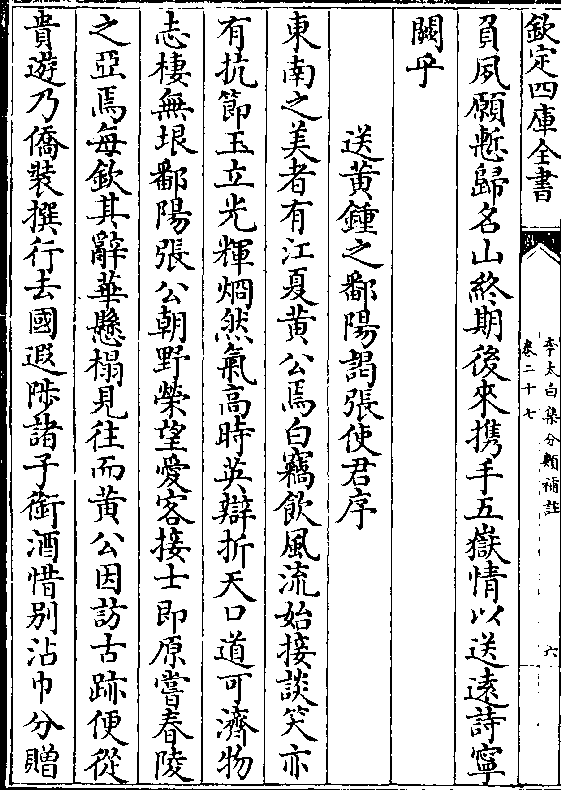 欽定四庫全書
李太白集分類補註
卷二十七
六
負夙願慙歸名山終期後來携手五嶽情以送遠詩寧
闕乎
送黃鍾之鄱陽謁張使君序
東南之美者有江夏黃公焉白竊飲風流始接談笑亦
有抗節玉立光輝烱然氣高時英辯折天口道可濟物
志棲無垠鄱陽張公朝野榮望愛客接士即原嘗春陵
之亞焉每欽其辭華懸榻見往而黃公因訪古跡便從
貴遊乃僑裝撰行去國遐陟諸子銜酒惜别沾巾分贈